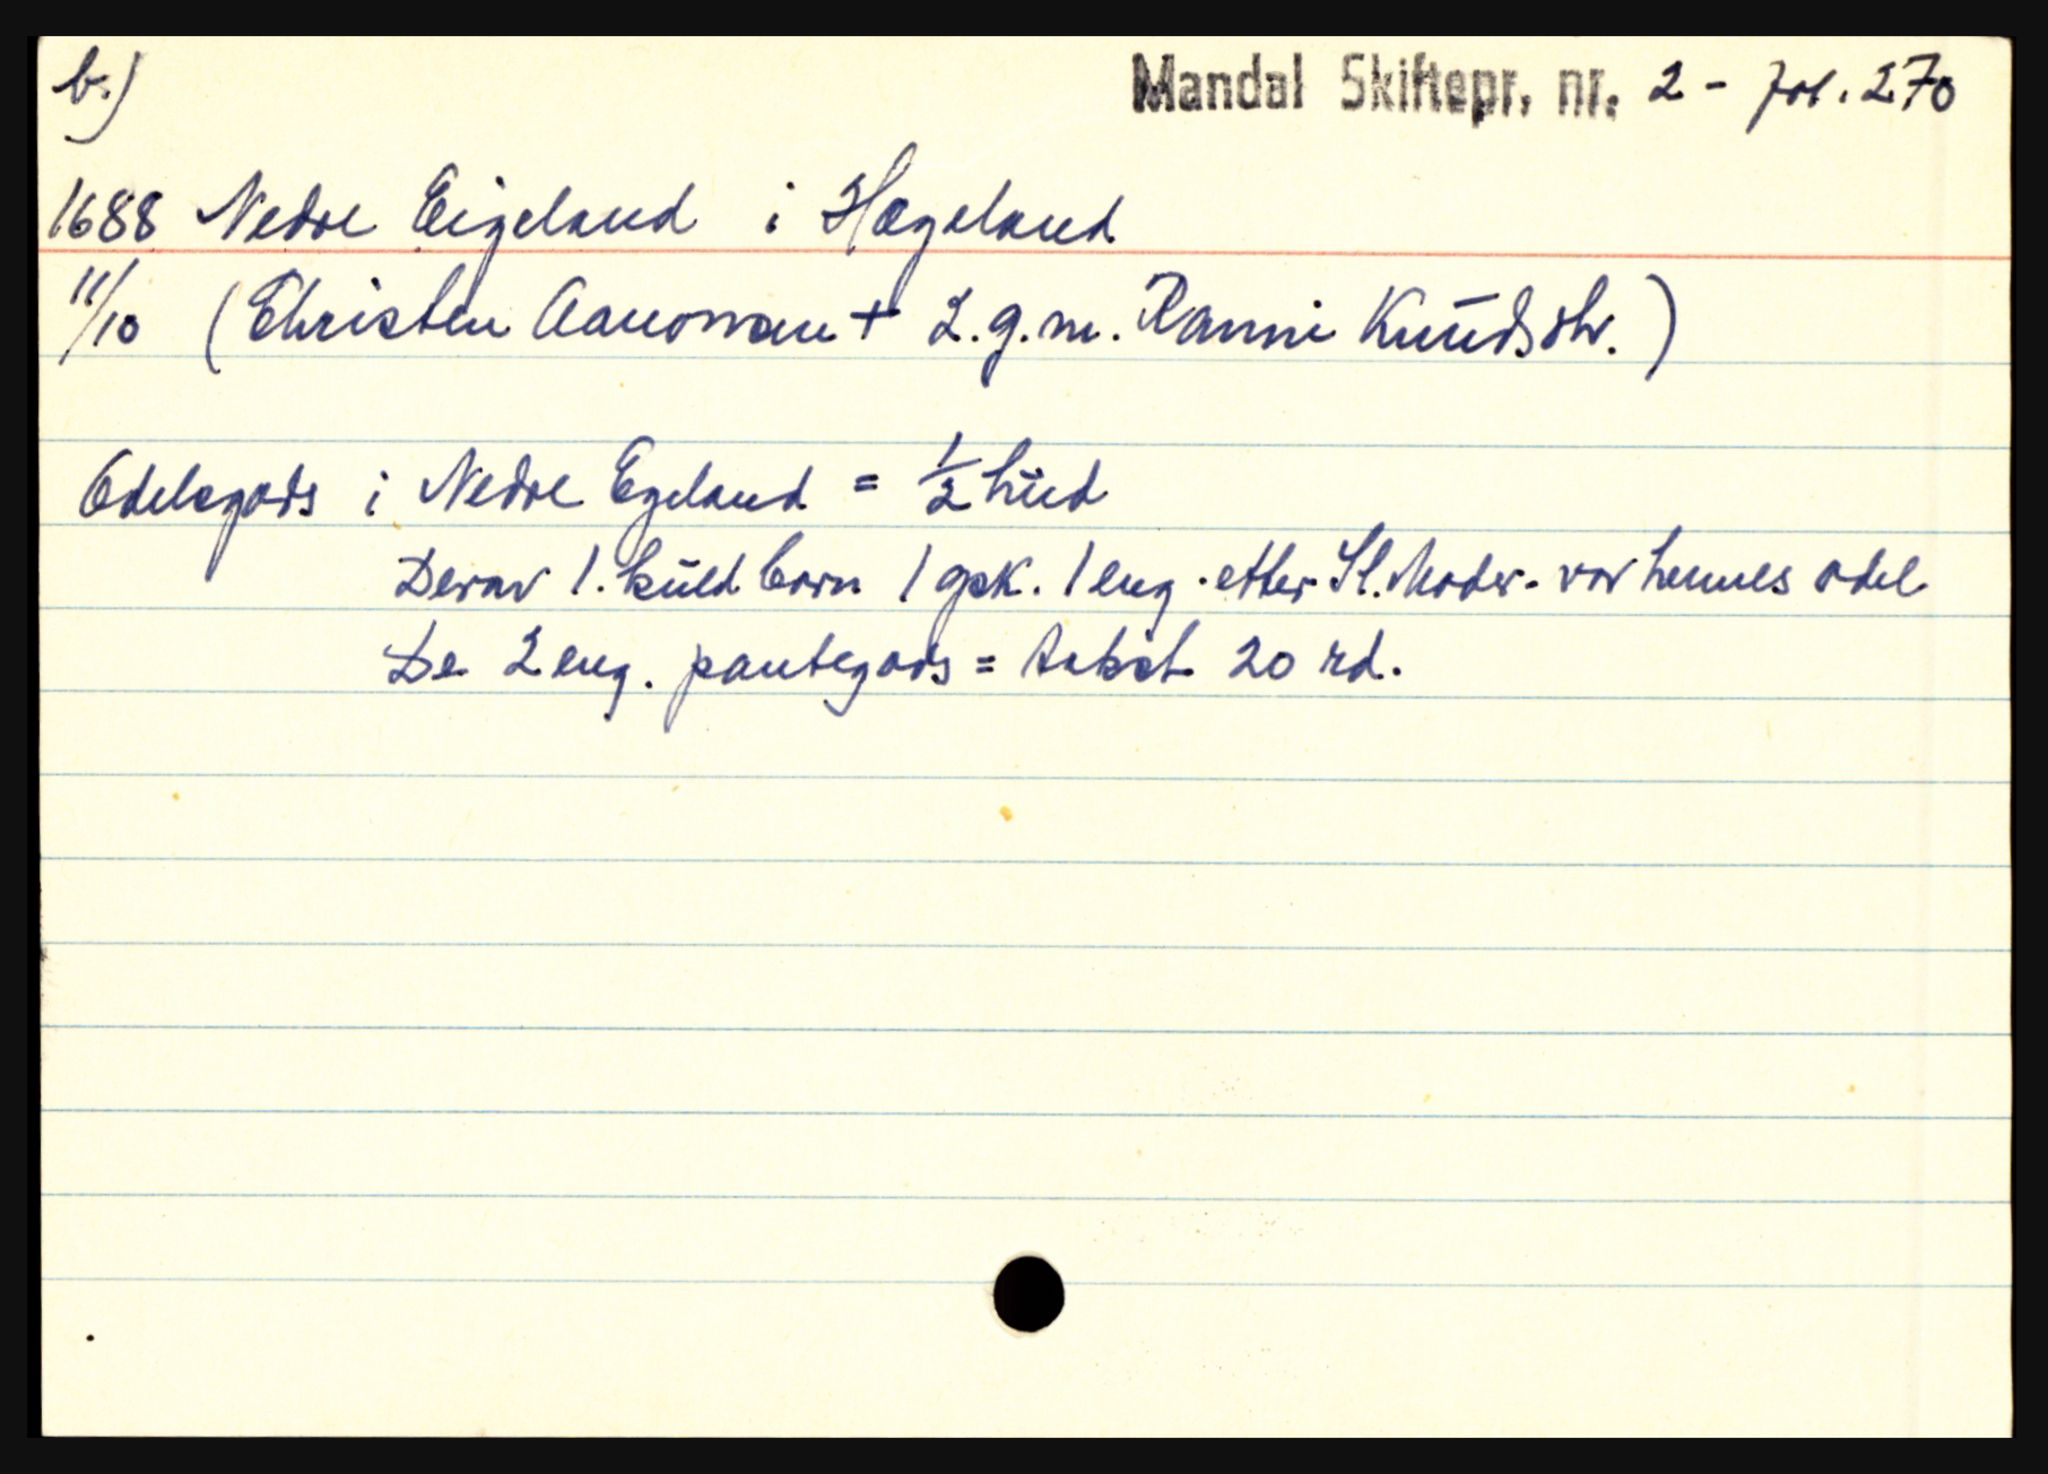 b.) Mandal Skiftepr. nr. 2 - fol. 270
1688 Nedre Eigeland i Hægeland
11/10 (Christen Aanonsen + 2. g. m. Ranni Knudsdtr.)
Odelsgods i Nedre Egeland = 1/2 hud
Derav 1. kuld børn 1 gsk. 1 eng. etter Sl. Moder - var hennes odel
De 2 eng. pantegods = takst 20 rd.